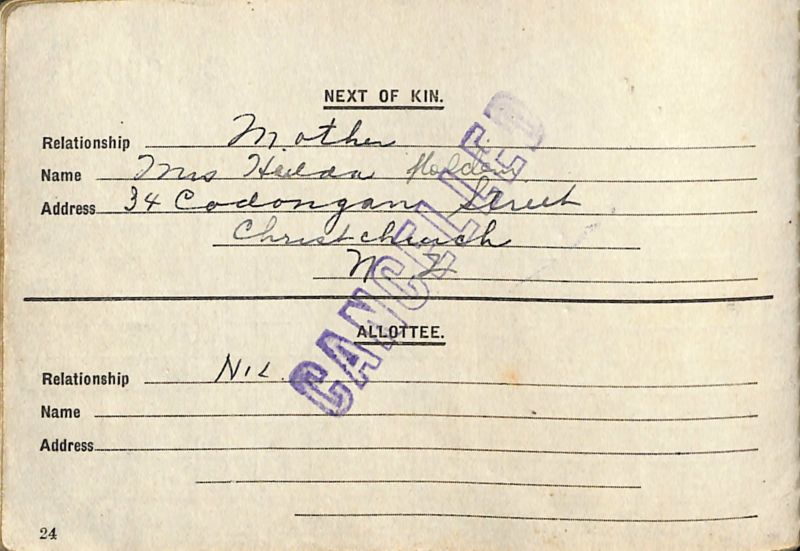 NEXT OF KIN.
Relationship Mother
Name Mrs Hulda Holden
Address 34 Codongan Street
Christchurch
N Z
CANCELLED
ALLOTTEE.
Relationship NIL
Name
Address
24